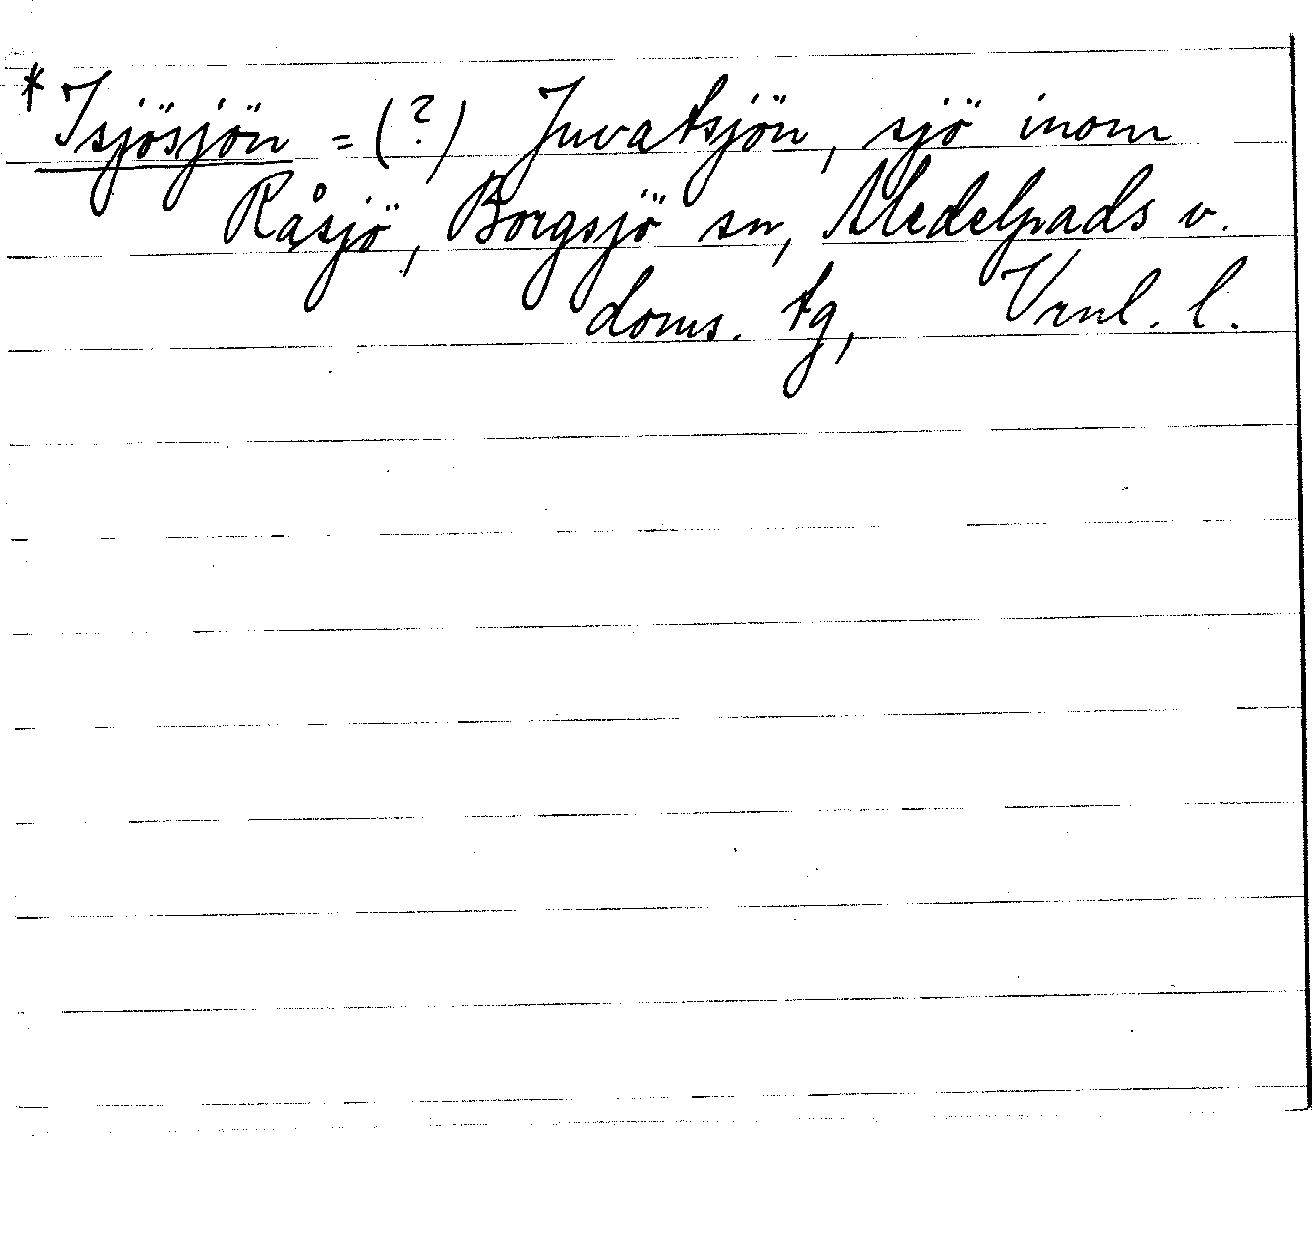 * Isjösjön = (?) Juvatsjön, sjö inom
Råsjö, Borgsjö sn, Medelpads v.
doms. tg, Vrnl. l.